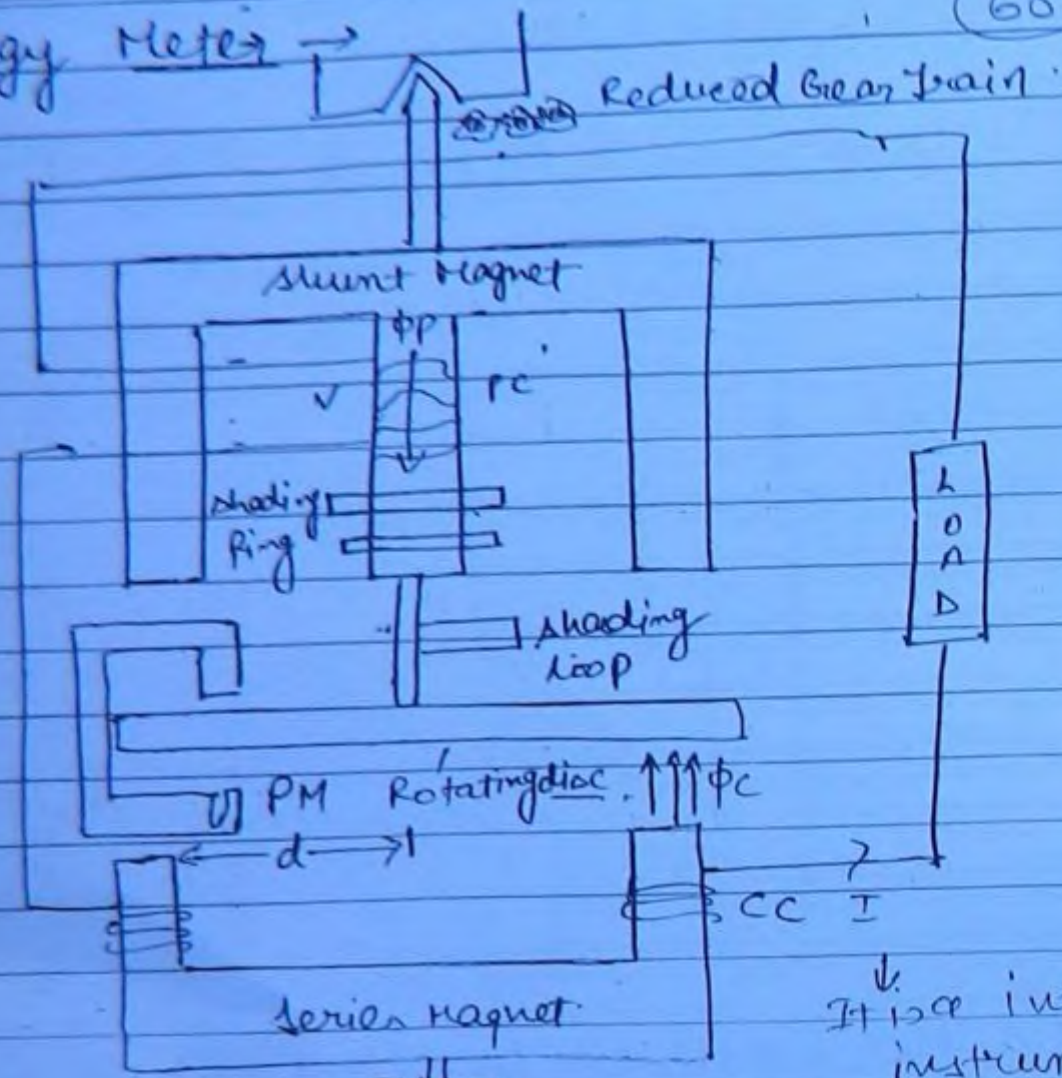 gy Meter → (60
Reduced Gear Train
Shunt Magnet
ϕP
V PC
Shading
Ring
Shading
Loop
L
O
A
D
PM Rotating disc. ϕC
d
CC I
Series Magnet
It is a in
instrum